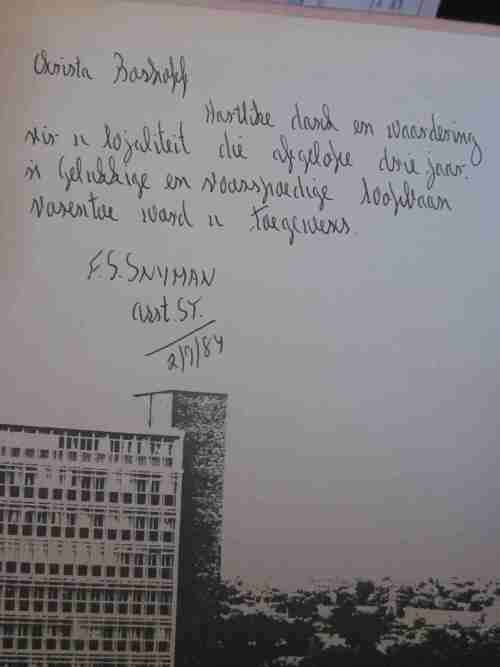 Christa Boshoff
Hartlike dank en waardering
vir u lojaliteit die afgelope drie jaar.
'n Gelukkige en voorspoedige loopbaan
vorentoe word u toegewens.
F.S. SNYMAN
asst. ST.
2/7/84